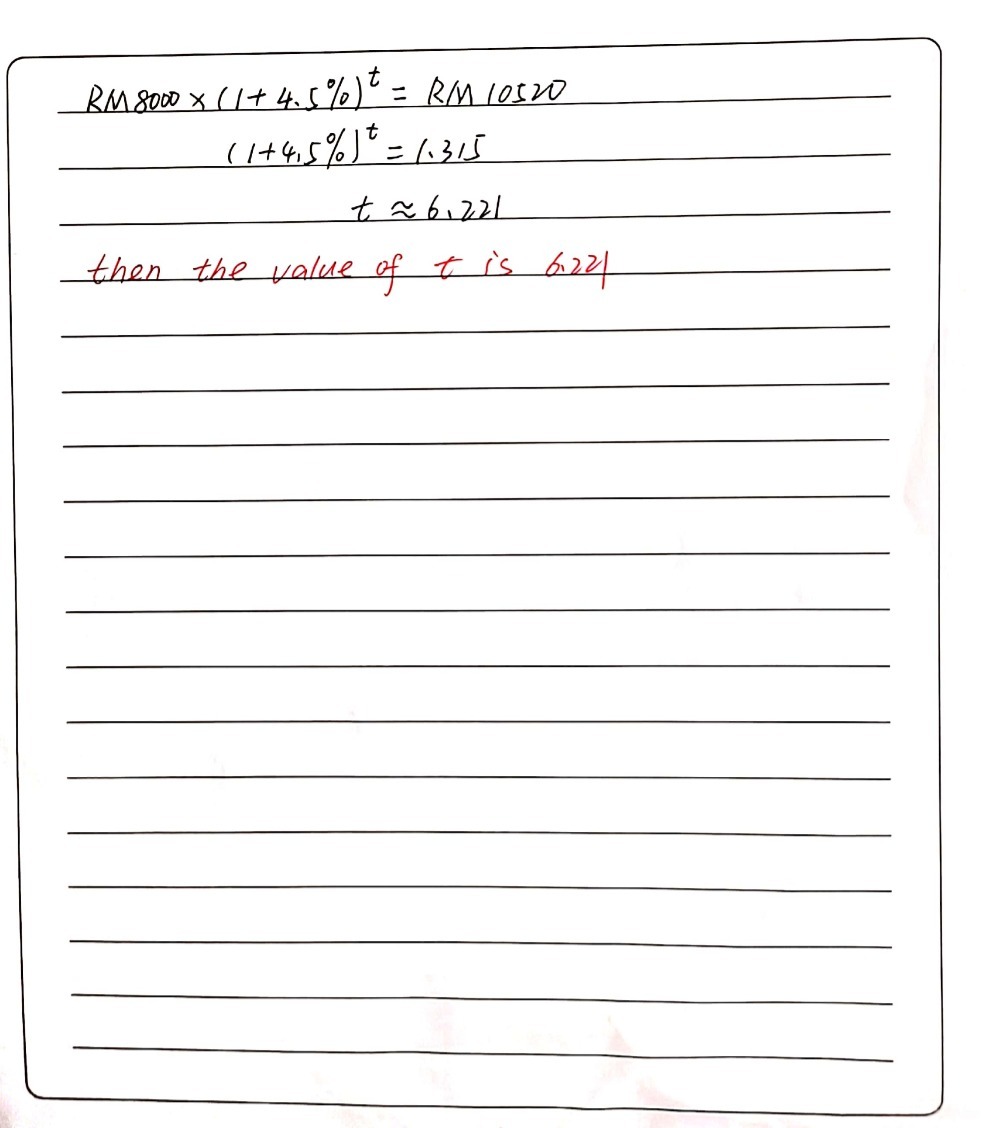 RM 8000 × (1 + 4.5%)^t = RM 10520
(1 + 4.5%)^t = 1.315
t ≈ 6.221
then the value of t is 6.221